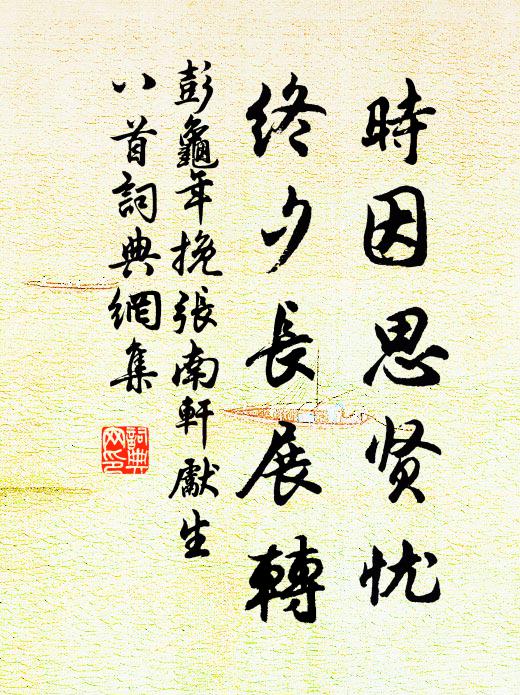 時因思贤忧
終夕長展轉
彭龜年挽張南軒獻生
八首詞典網集
詞典网印